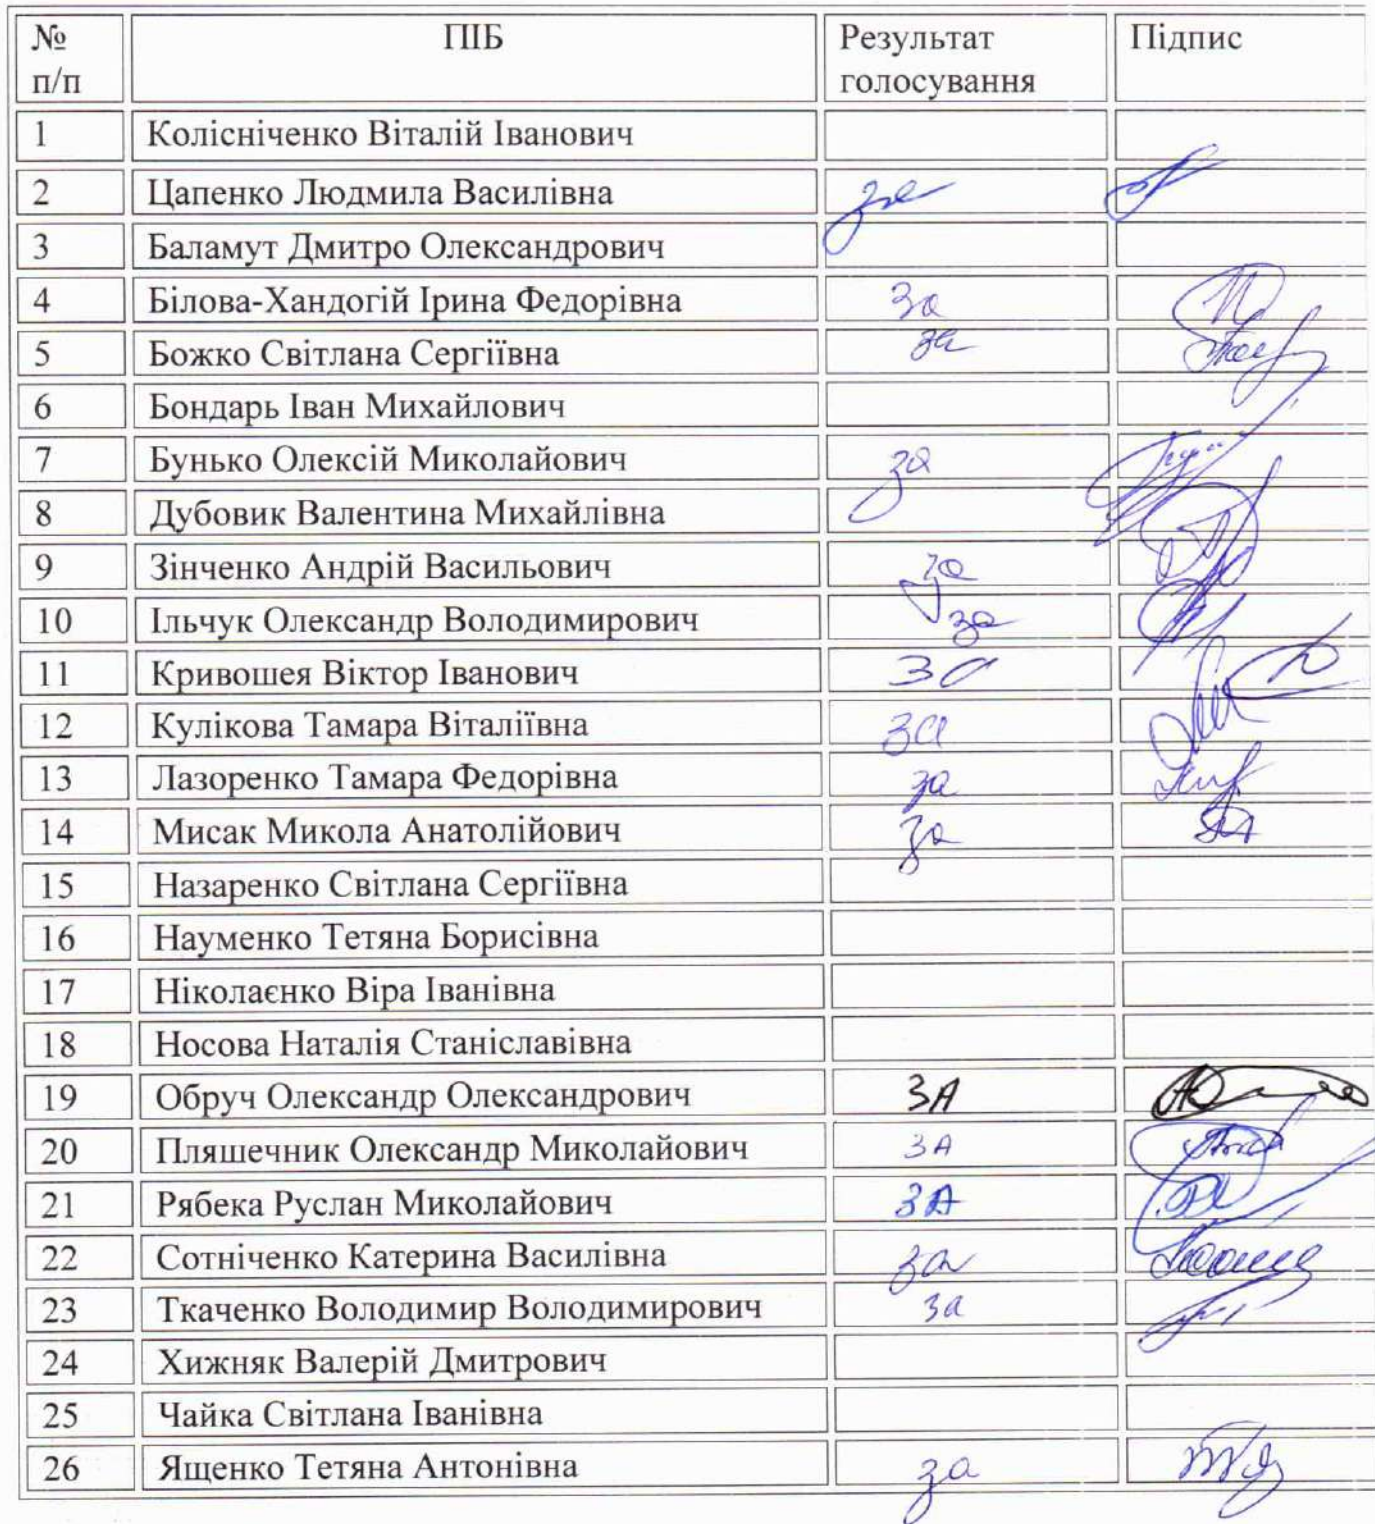 № п/п ПІБ Результат голосування Підпис
1 Колісніченко Віталій Іванович
2 Цапенко Людмила Василівна за
3 Баламут Дмитро Олександрович
4 Білова-Хандогій Ірина Федорівна за
5 Божко Світлана Сергіївна за
6 Бондарь Іван Михайлович
7 Бунько Олексій Миколайович за
8 Дубовик Валентина Михайлівна
9 Зінченко Андрій Васильович за
10 Ільчук Олександр Володимирович за
11 Кривошея Віктор Іванович за
12 Кулікова Тамара Віталіївна за
13 Лазоренко Тамара Федорівна за
14 Мисак Микола Анатолійович за
15 Назаренко Світлана Сергіївна
16 Науменко Тетяна Борисівна
17 Ніколаєнко Віра Іванівна
18 Носова Наталія Станіславівна
19 Обруч Олександр Олександрович ЗА
20 Пляшечник Олександр Миколайович ЗА
21 Рябека Руслан Миколайович ЗА
22 Сотніченко Катерина Василівна за
23 Ткаченко Володимир Володимирович за
24 Хижняк Валерій Дмитрович
25 Чайка Світлана Іванівна
26 Ященко Тетяна Антонівна за